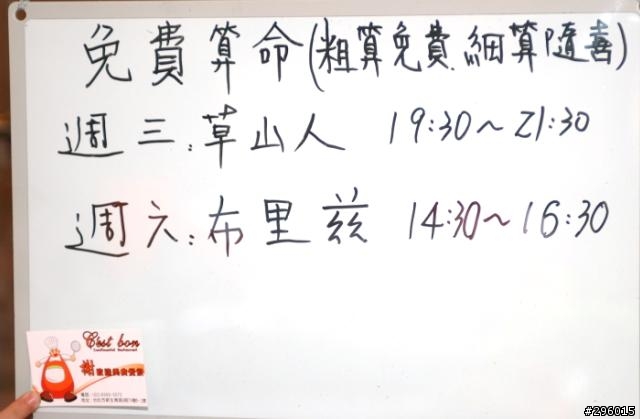 免費算命(粗算免費.細算隨喜)
週三:草山人 19:30~21:30
週六:布里茲 14:30~16:30
C'est bon
Continental Restaurant
#296015